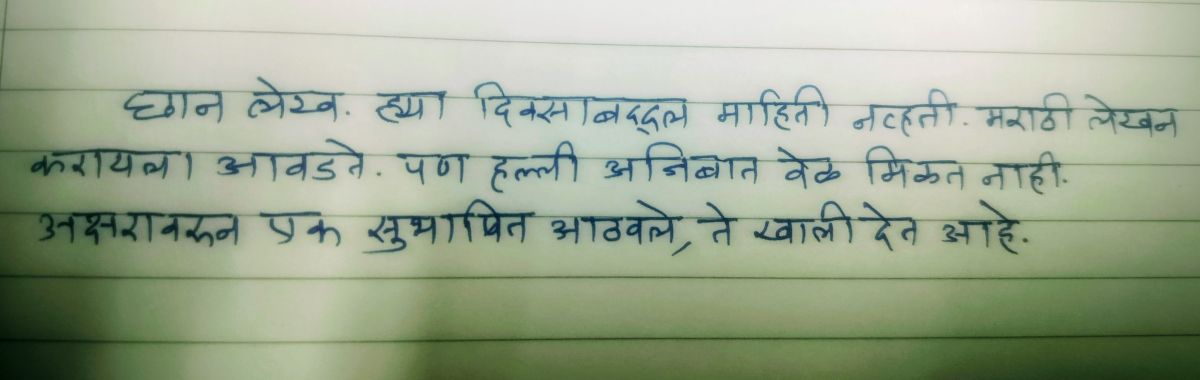 छान लेख. ह्या दिवसाबद्दल माहिती नव्हती. मराठी लेखन
करायला आवडते. पण हल्ली अजिबात वेळ मिळत नाही.
अक्षरावरून एक सुभाषित आठवले, ते खाली देत आहे.